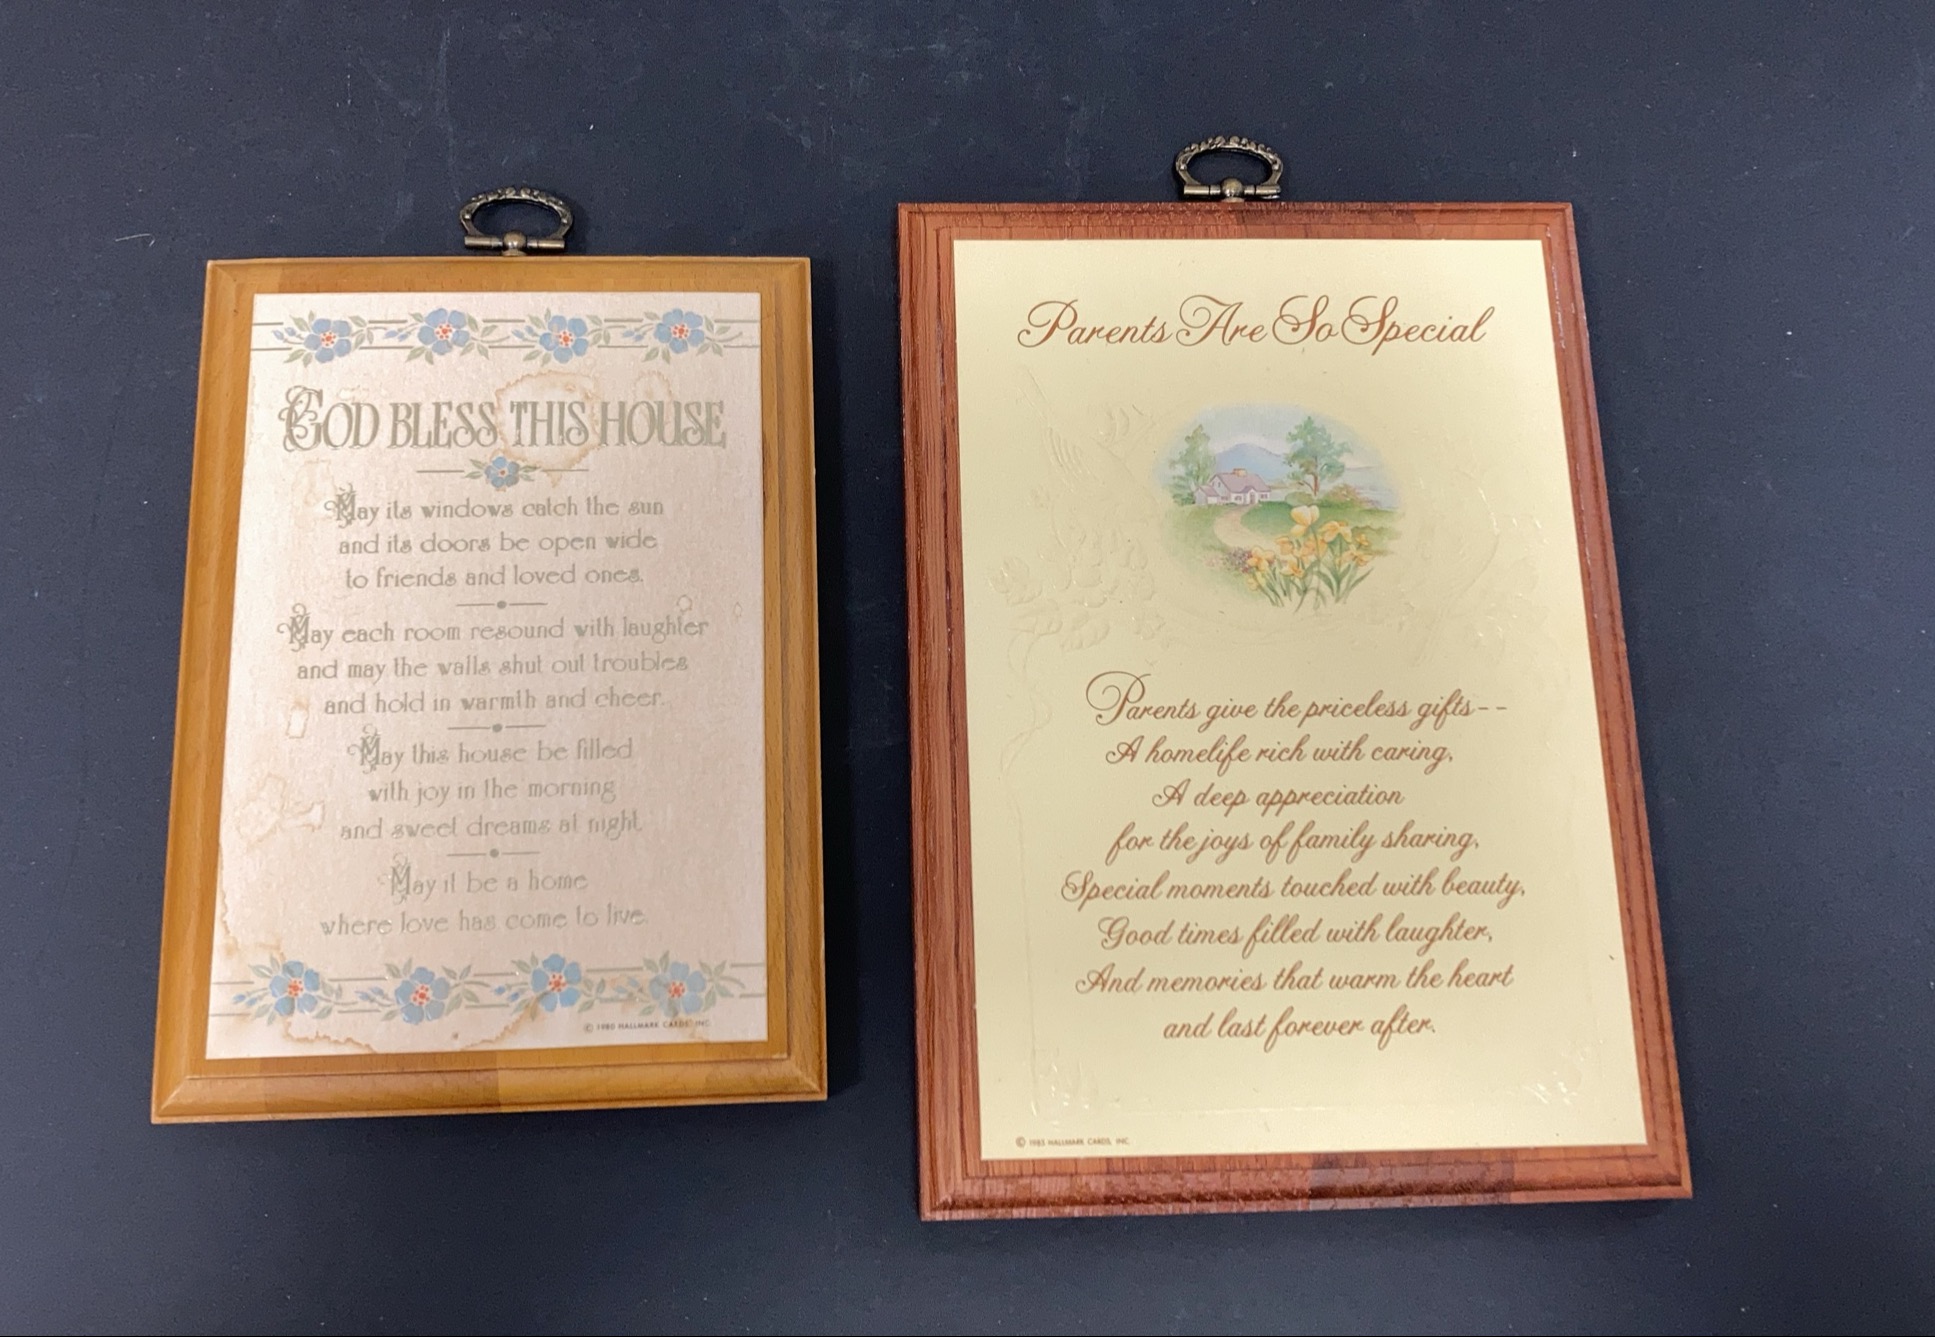 GOD BLESS THIS HOUSE
May its windows catch the sun
and its doors be open wide
to friends and loved ones.
May each room resound with laughter
and may the walls shut out troubles
and hold in warmth and cheer.
May this house be filled
with joy in the morning
and sweet dreams at night.
May it be a home
where love has come to live.
© 1980 HALLMARK CARDS, INC.
Parents Are So Special
Parents give the priceless gifts--
A homelife rich with caring,
A deep appreciation
for the joys of family sharing,
Special moments touched with beauty,
Good times filled with laughter,
And memories that warm the heart
and last forever after.
© 1983 HALLMARK CARDS, INC.